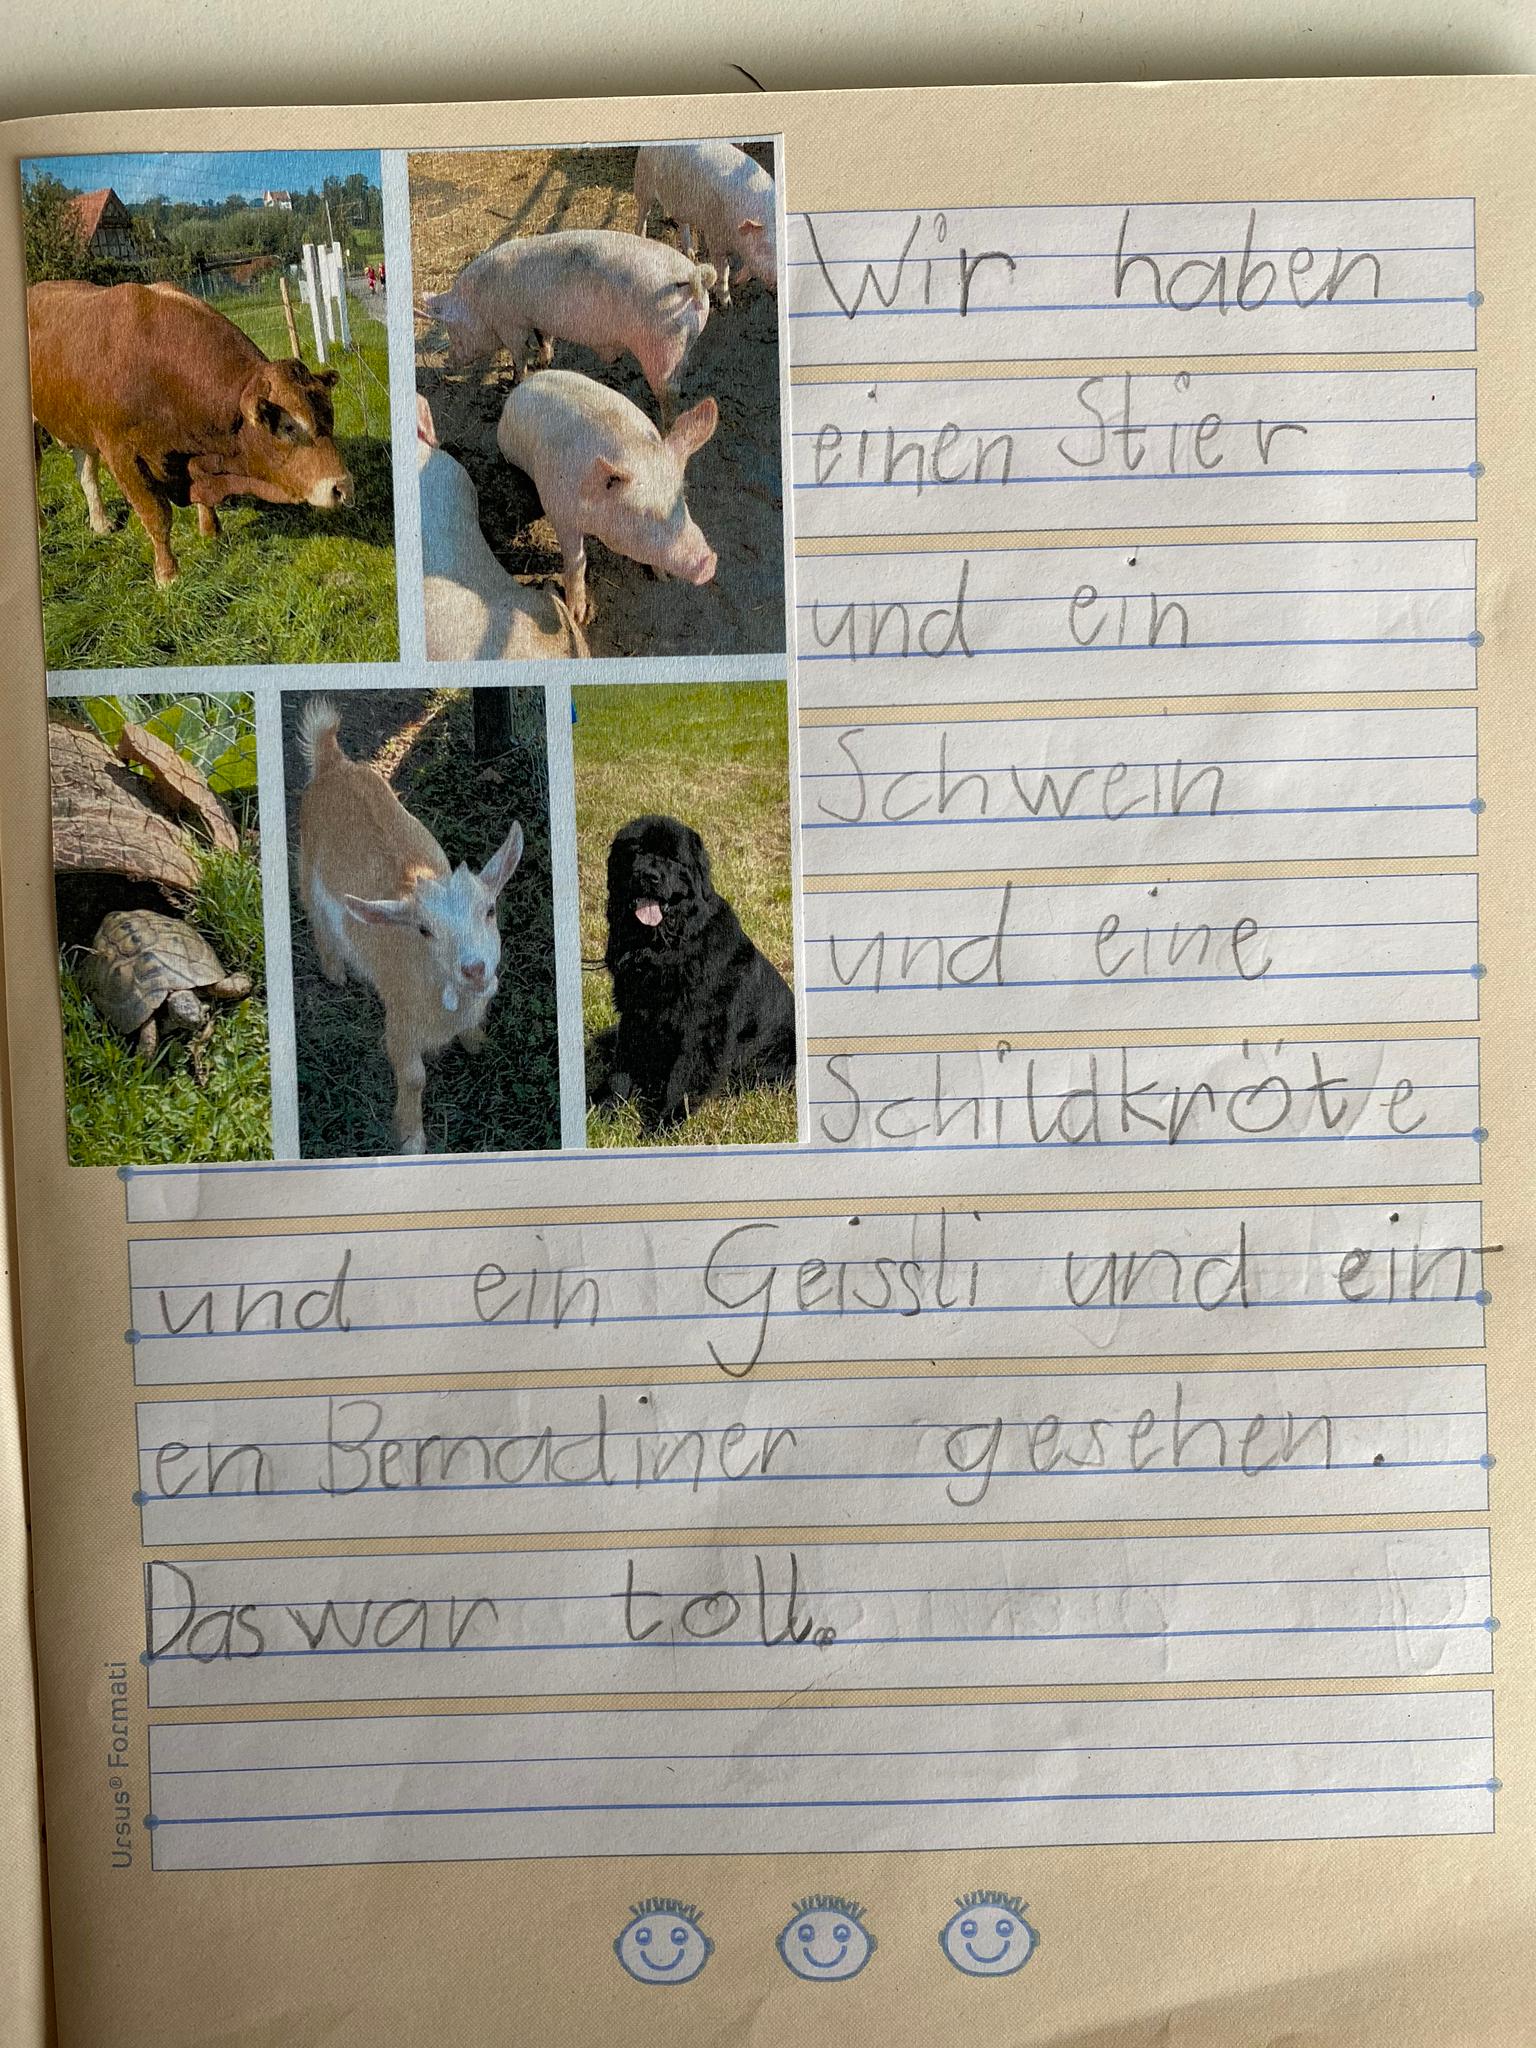 Wir haben
einen Stier
und ein
Schwein
und eine
Schildkröte
und ein Geissli und ein-
en Bernadiner gesehen.
Das war toll.
Ursus® Formati